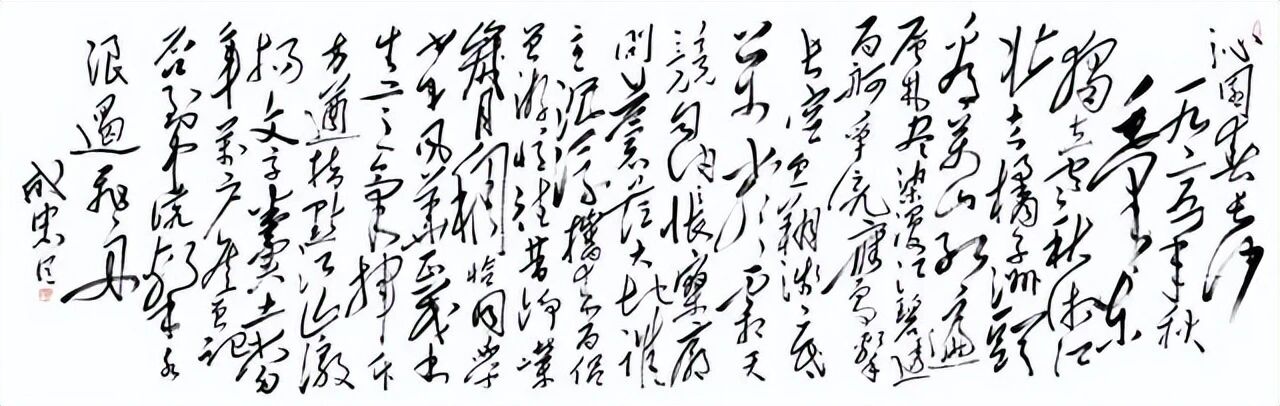 沁園春長沙
一九二五年秋
毛泽东
獨立寒秋湘江
北去橘子洲頭
看万山红遍
层林尽染漫江碧透
百舸争流鹰擊
长空鱼翔浅底
万类霜天
竞自由怅寥廓
問蒼茫大地谁
主沉浮携来百侣
曾游忆往昔峥嵘
歲月稠恰同学
少年风华正茂书
生意氣挥斥
方遒指點江山激
扬文字粪土当
年萬户侯曾记
否到中流擊水
浪遏飛舟
成忠